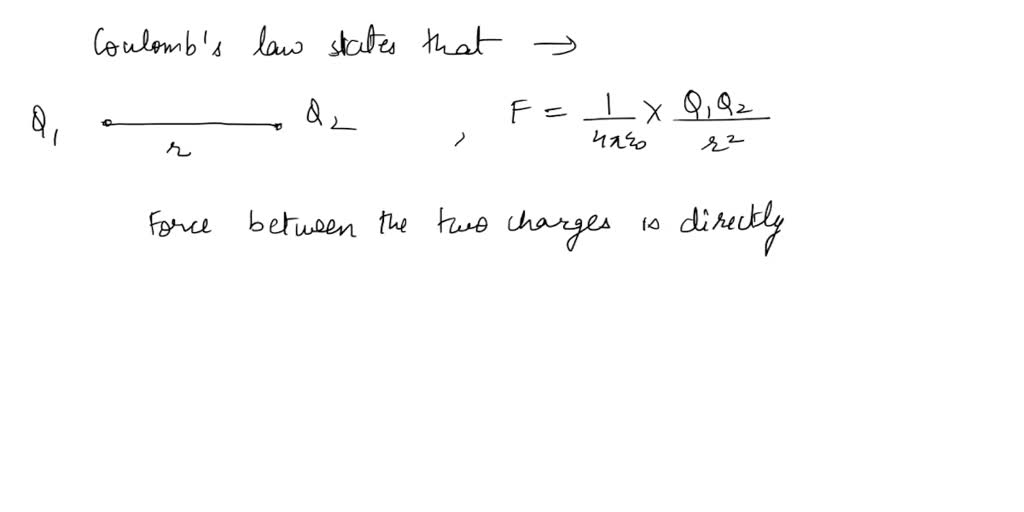 Coulomb's law states that →
Q₁ Q₂ , F = 1/4πε₀ × Q₁Q₂/r²
r
Force between the two charges is directly